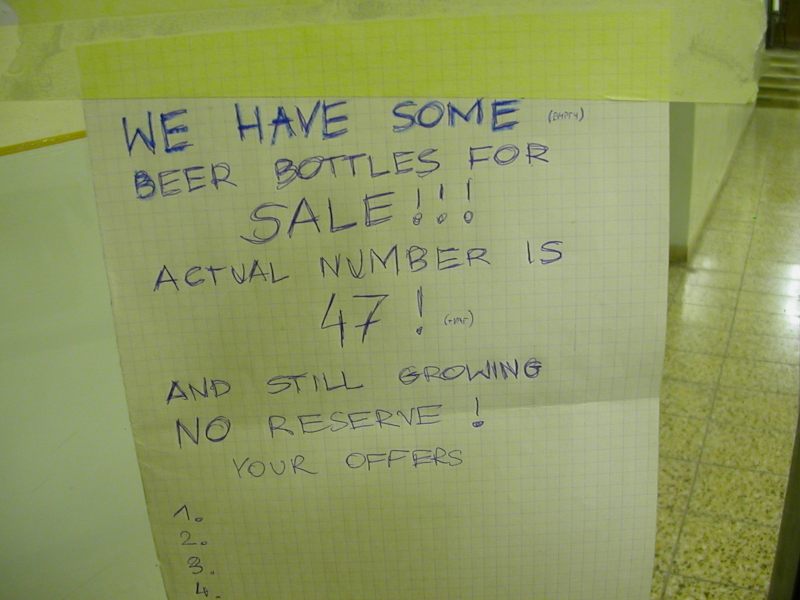 WE HAVE SOME (EMPTY)
BEER BOTTLES FOR
SALE!!!
ACTUAL NUMBER IS
47!
AND STILL GROWING
NO RESERVE!
YOUR OFFERS
1.
2.
3.
4.